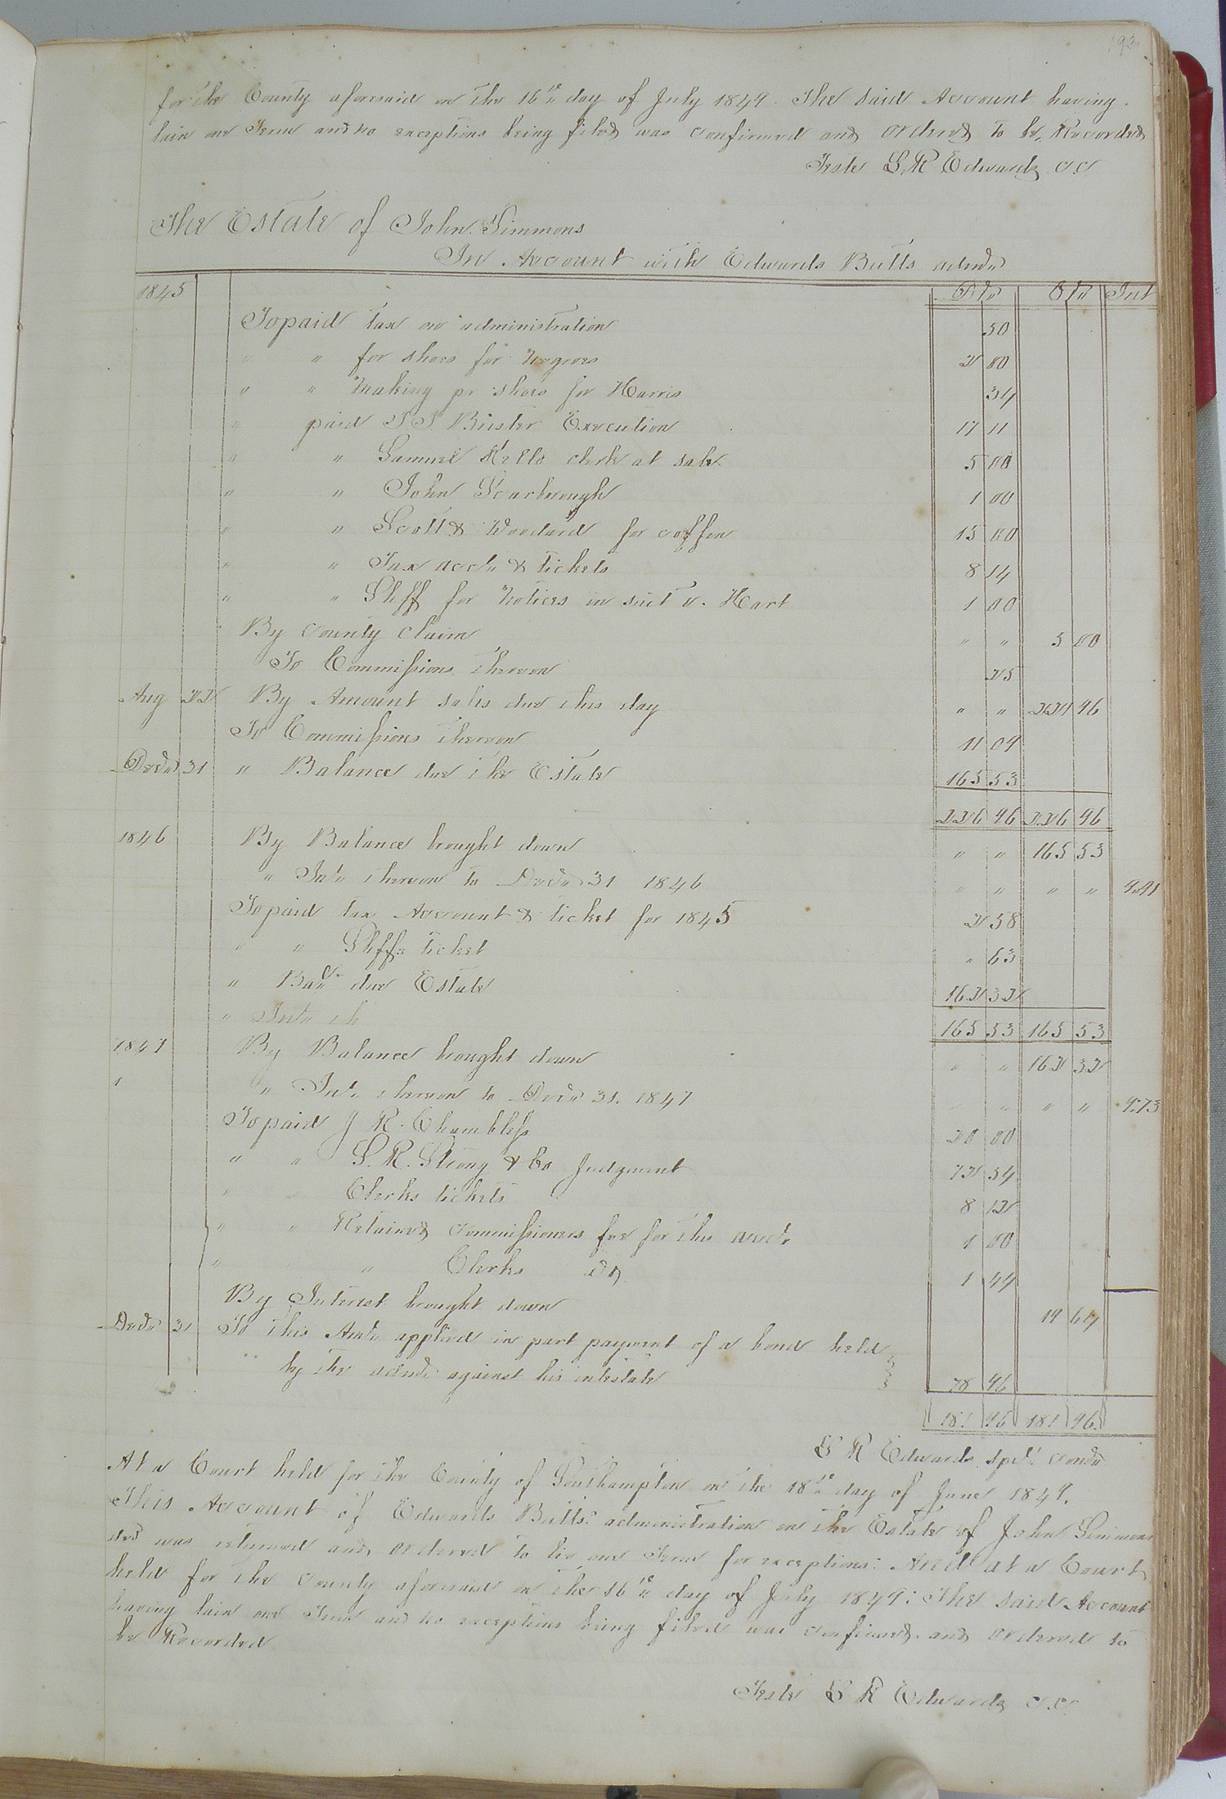 193
for the County aforesaid on the 16th day of July 1849. The said Account having
lain one Term and no exceptions being filed was confirmed and ordered to be Recorded
Teste L R Edwards CC
The Estate of John Simmons
In Account with Edwards Butts admr
Dr Cr Int
1845
To paid tax on administration 50
" " for shoes for negroes 2 80
" " making pr shoes for Harris 34
" paid Buster Execution 17 11
" " Samuel Kello clerk at sale 5 00
" " John Scarbrough 1 00
" " Scott & Woodard for coffin 15 00
" " Tax acct & tickets 8 14
" " Shff for notices in suit v. Hart 1 00
By County claim " " 5 00
To Commissions thereon 25
Aug 22 By Amount sales due this day " " 221 96
To Commissions thereon 11 09
Decr 31 " Balance due the Estate 165 53
226 96 226 96
1846 By Balance brought down " " 165 53
" Int thereon to Decr 31 1846 " " " " 9.91
To paid tax Account & ticket for 1845 2 58
" " Shffs ticket " 63
" Bal due Estate 162 32
" Int th
165 53 165 53
1847 By Balance brought down " " 162 32
" " Int thereon to Decr 31. 1847 " " " 9.73
To paid J R. Chambliss 20 00
" " S. R. Strong & Co Judgment 72 54
" " Clerks tickets 8 12
" " Retained commissioners fee for this acct 1 00
" " Clerks do 1 44
By Interest brought down 19 64
Decr 31 To this Amt applied in part payment of a bond held
by the admr against his intestate 78 96
181 96 181 96
L R Edwards spl. comr
At a Court held for the County of Southampton on the 18th day of June 1849.
This Account of Edwards Butts' administration on the Estate of John Simmons
decd was returned and ordered to lie one Term for exceptions: And at a Court
held for the County aforesaid on the 16th day of July 1849: The said Account
having lain one Term and no exceptions being filed was confirmed and ordered to
be Recorded
Teste L R Edwards CC